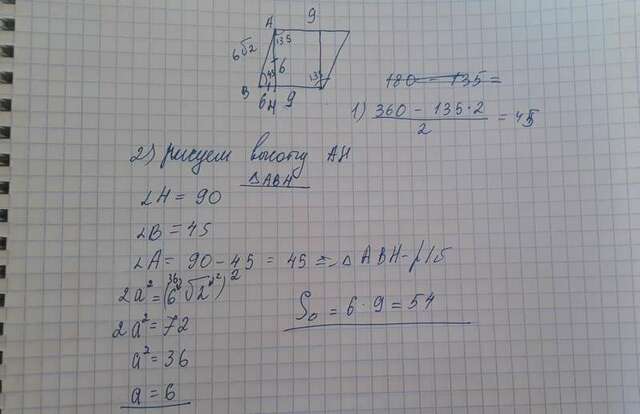 A 9
135
6√2 6
45 135
B 6 H 9
180 - 135 =
1) (360 - 135·2)/2 = 45
2) рисуем высоту AH
△ABH
∠H = 90
∠B = 45
∠A = 90 - 45 = 45 => △ABH - р/б
2a² = (6√2)²
2a² = 72
a² = 36
a = 6
S = 6 · 9 = 54